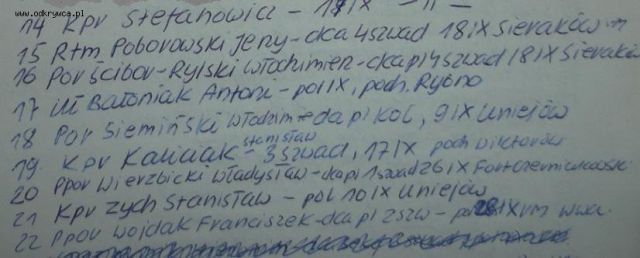 www.odkrywca.pl
14 Kpr Stefanowicz - 17 IX - 11 -
15 Rtm Poborowski Jerzy - dca 4 szwad 18 IX Sieraków
16 Por Ścibor-Rylski Włodzimierz - dca pl 4 szwad 18 IX Sieraków
17 uł Batoniak Antoni - pol IX, poch. Rybno
18 Por Siemiński Włodzimierz dca pl kol, 9 IX Uniejów
19. Kpr Kaliciak Stanisław - 3 szwad, 17 IX poch Wiktorów
20 Ppor Wierzbicki Władysław - dca pl 1 szwad 26 IX Fort
21 Kpr Zych Stanisław - pol 10 IX Uniejów
22 Ppor Wojdak Franciszek - dca pl 2 szw - 28 IX rm Wwa.